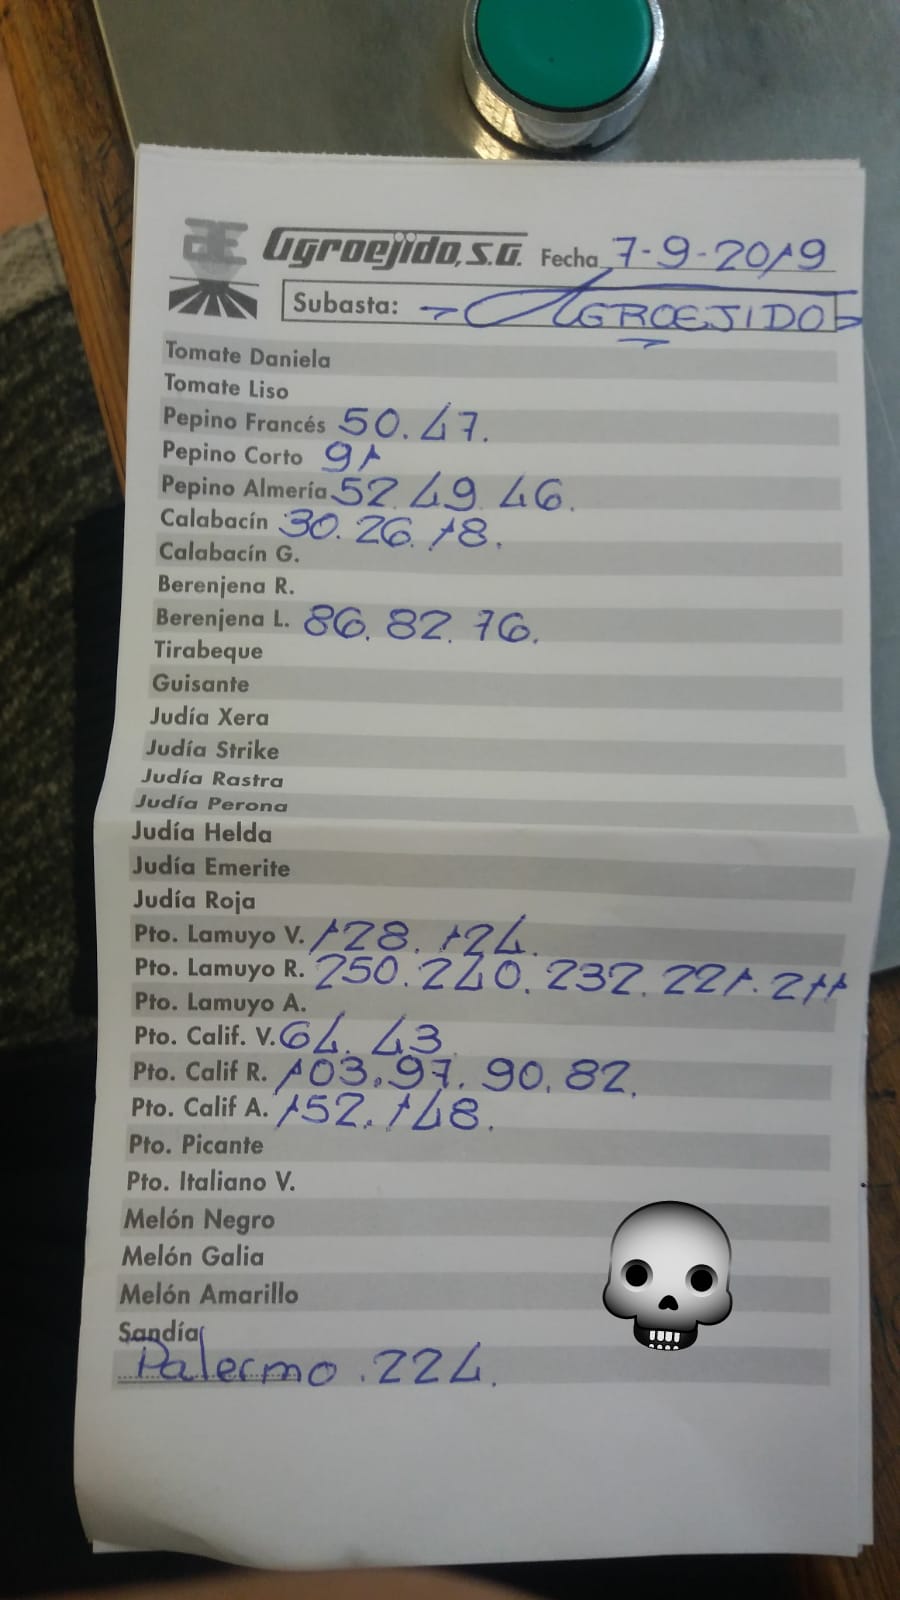 Agroejido, S.A. Fecha 7-9-2019
Subasta: → AGROEJIDO
Tomate Daniela
Tomate Liso
Pepino Francés 50. 47.
Pepino Corto 91
Pepino Almería 52. 49. 46.
Calabacín 30. 26. 18.
Calabacín G.
Berenjena R.
Berenjena L. 86. 82. 76.
Tirabeque
Guisante
Judía Xera
Judía Strike
Judía Rastra
Judía Perona
Judía Helda
Judía Emerite
Judía Roja
Pto. Lamuyo V. 128. 124.
Pto. Lamuyo R. 250. 240. 232. 221. 211
Pto. Lamuyo A.
Pto. Calif. V. 64. 43
Pto. Calif R. 103. 97. 90. 82.
Pto. Calif A. 152. 148.
Pto. Picante
Pto. Italiano V.
Melón Negro
Melón Galia
Melón Amarillo
Sandía
Palermo . 224.